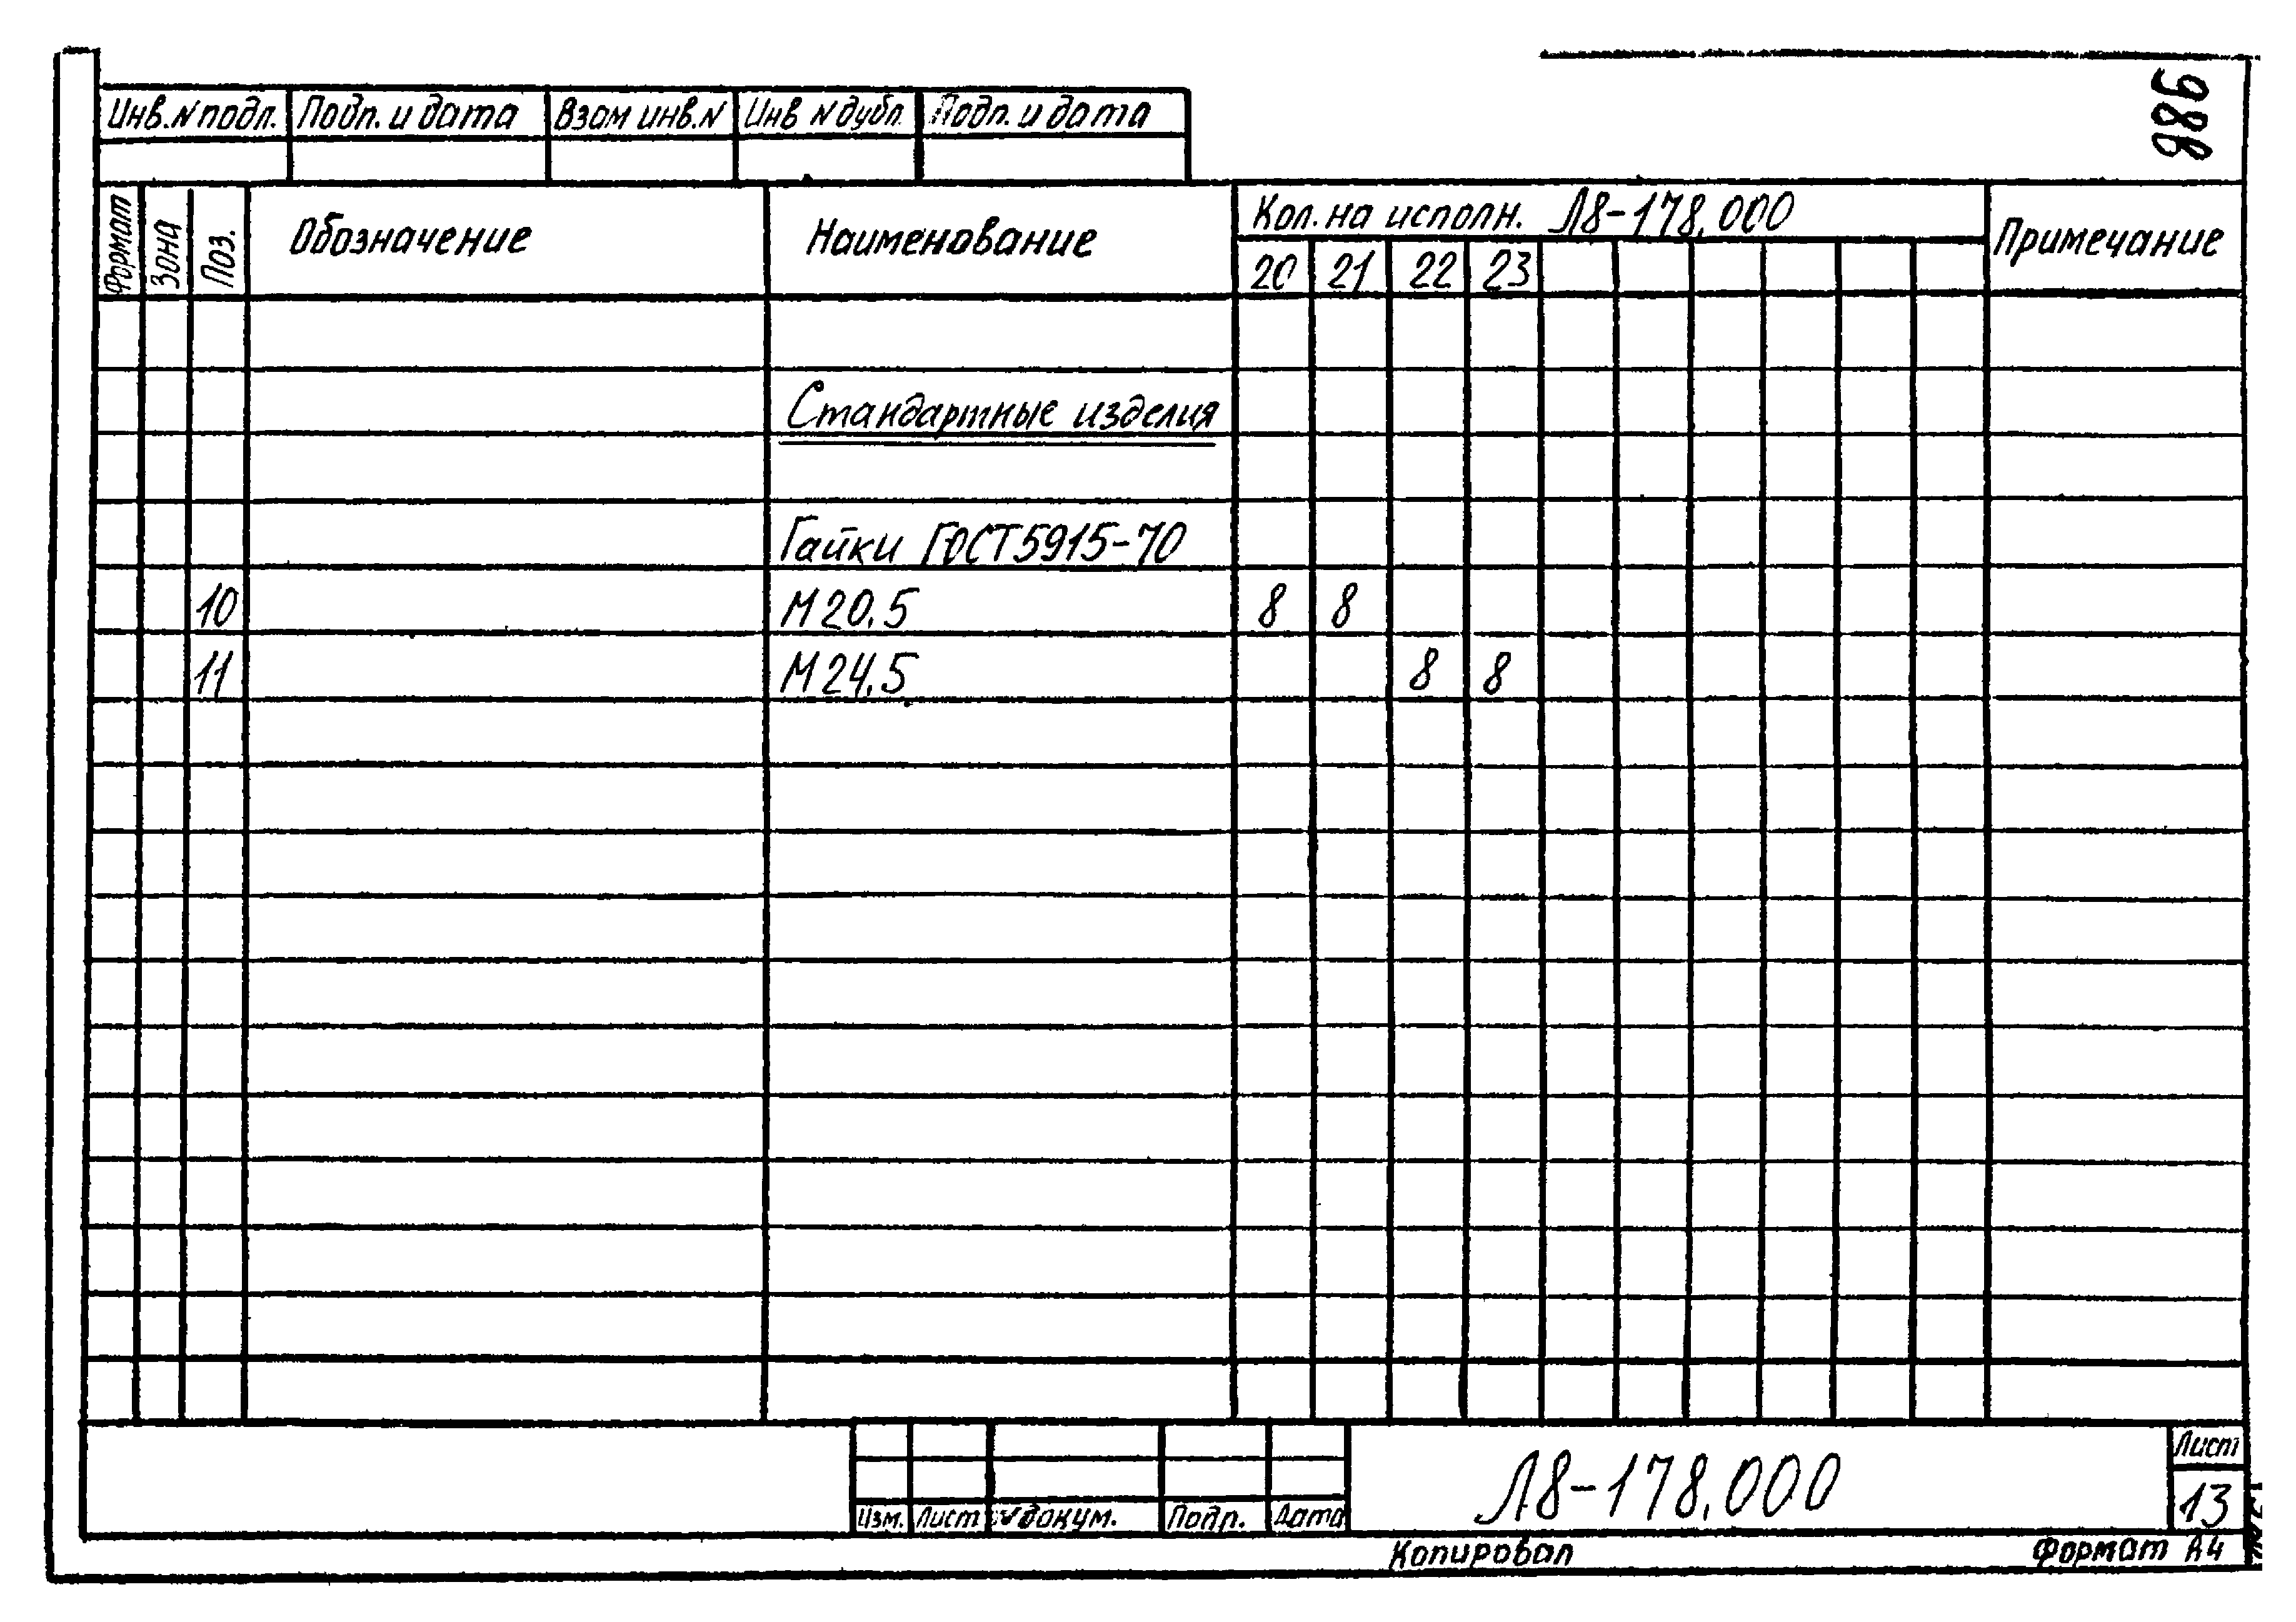 986
Инв.N подл. Подп. и дата Взам инв.N Инв N дубл. Подп. и дата
Формат Зона Поз. Обозначение Наименование Кол. на исполн. Л8-178.000 Примечание
20 21 22 23
Стандартные изделия
Гайки ГОСТ5915-70
10 М20.5 8 8
11 М24.5 8 8
Изм. Лист докум. Подр. Дата Л8-178.000 Лист
13
Копировал Формат А4